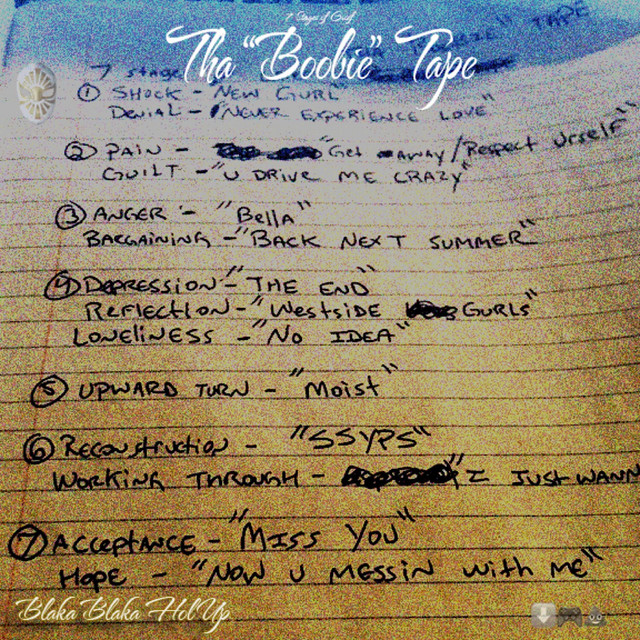 7 Stages of Grief
Tha "Boobie" Tape
TAPE
7 stage
① SHOCK - "NEW GURL"
DENIAL - "NEVER EXPERIENCE LOVE"
② PAIN - "Get away/Respect Urself"
GUILT - "U DRIVE ME CRAZY"
③ ANGER - "Bella"
BARGAINING - "BACK NEXT SUMMER"
④ DEPRESSION - "THE END"
REFLECTION - "Westside GURLS"
LONELINESS - "No IDEA"
⑤ UPWARD TURN - "Moist"
⑥ RECONSTRUCTION - "SSYPS"
WORKING THROUGH - "I JUST WANN
⑦ ACCEPTANCE - "MISS YOU"
HOPE - "NOW U MESSIN WITH ME"
Blaka Blaka Hol Up